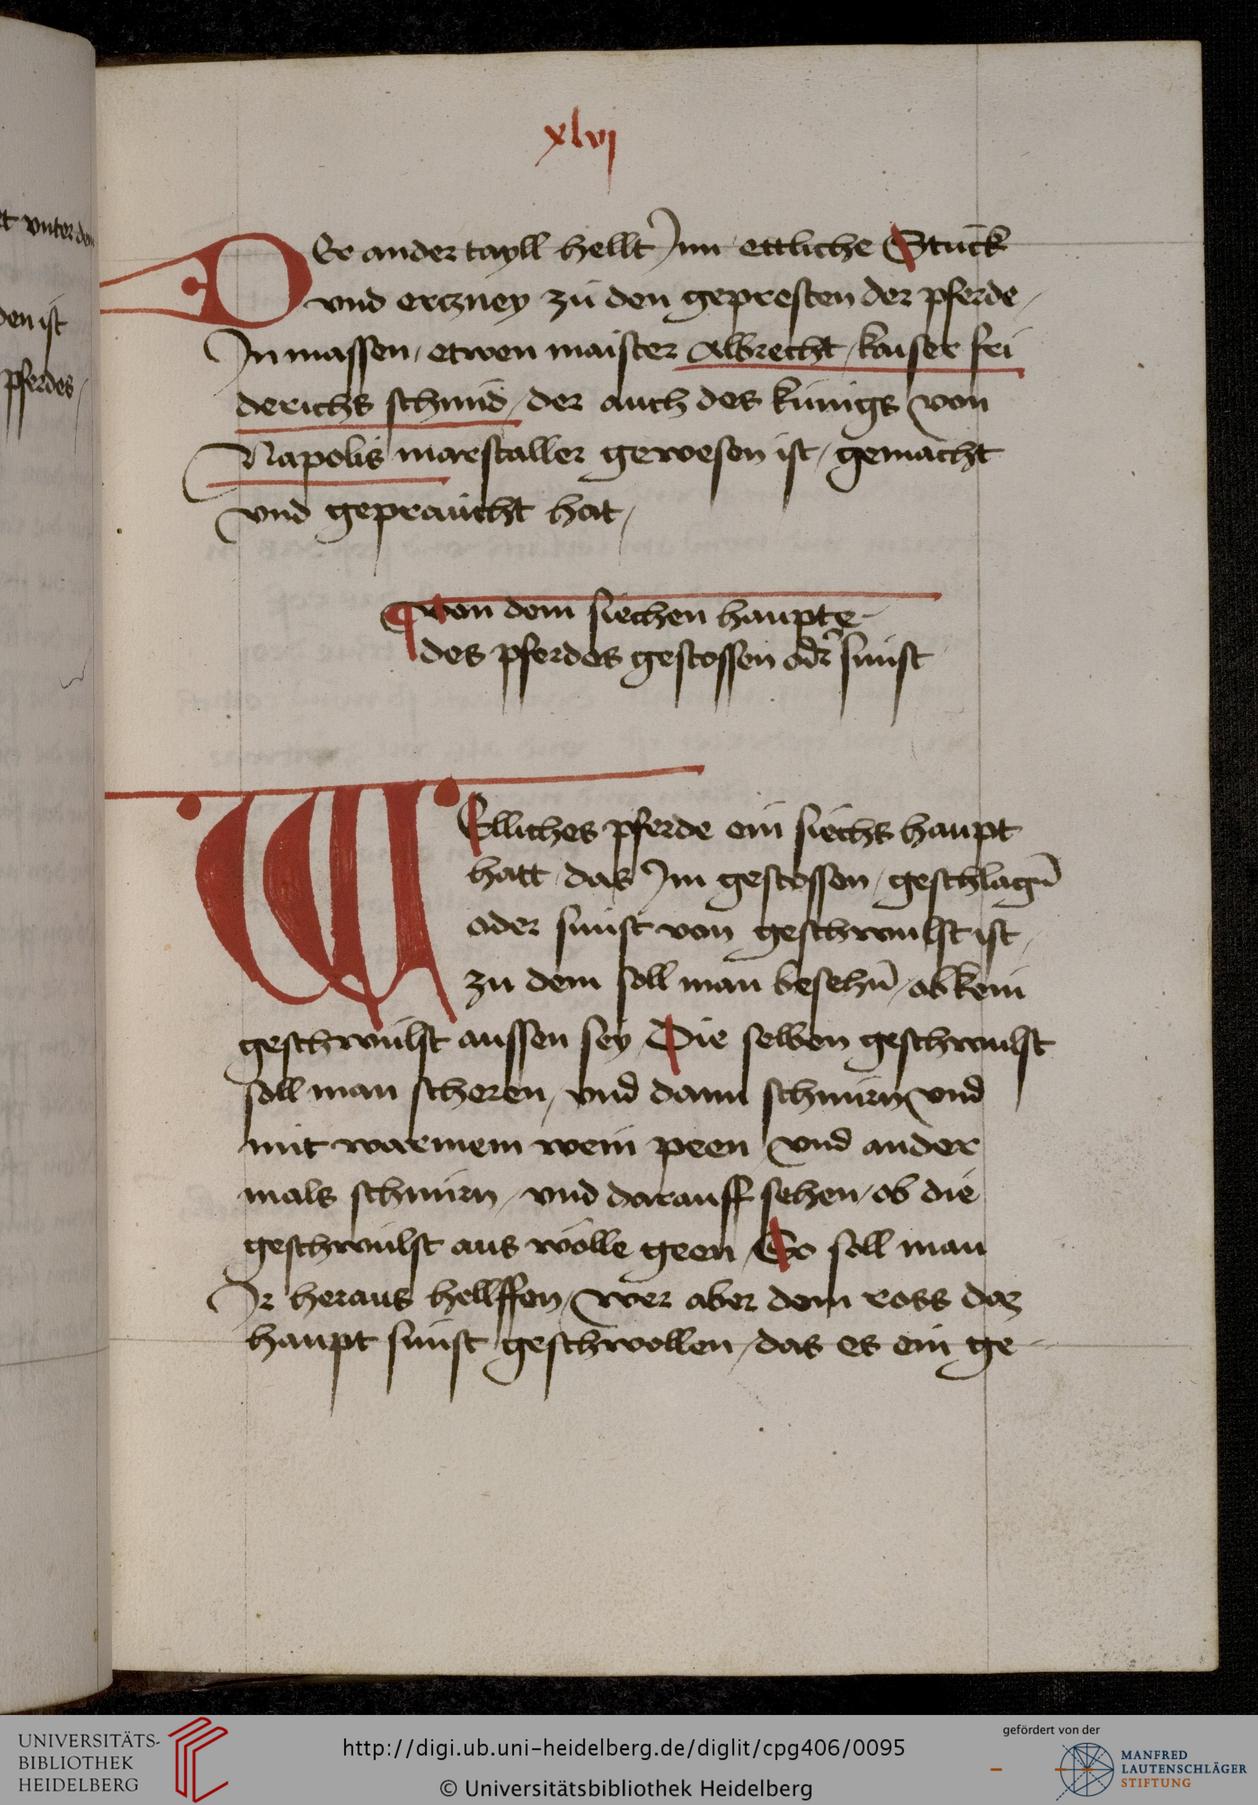 xlvi
DEr ander tayll hellt Jnn ettliche Stuck
vnd erczney zu den gepresten der pferde /
Jn massen / etwen maister Albrecht / kaiser fri
derichs schmid / der auch des künigs von
Napolis marstaller gewesen ist / gemacht
vnd gepraucht hat /
¶ Von dem siechen haupte
des pferdes gestossen odr̄ sunst
WElliches pferde ein siechs haupt
hatt / das Jm gestossen / geschlagn̄
oder sunst von geschwulst ist /
zu dem soll man besehn̄ / ob kein
geschwulst aussen sey / Die selben geschwulst
soll man scheren / vnd dann schmirn vnd
mit warmem wein peen / vnd ander
mals schmirn / vnd darauff sehen / ob die
geschwulst aus wölle geen / So soll man
Jr heraus hellffen / wer aber dem ross daz
haupt sunst geschwollen / das es ein ge-
et vnter den
den ist
pferdes /
UNIVERSITÄTS-
BIBLIOTHEK
HEIDELBERG
http://digi.ub.uni-heidelberg.de/diglit/cpg406/0095
© Universitätsbibliothek Heidelberg
gefördert von der
MANFRED
LAUTENSCHLÄGER
STIFTUNG